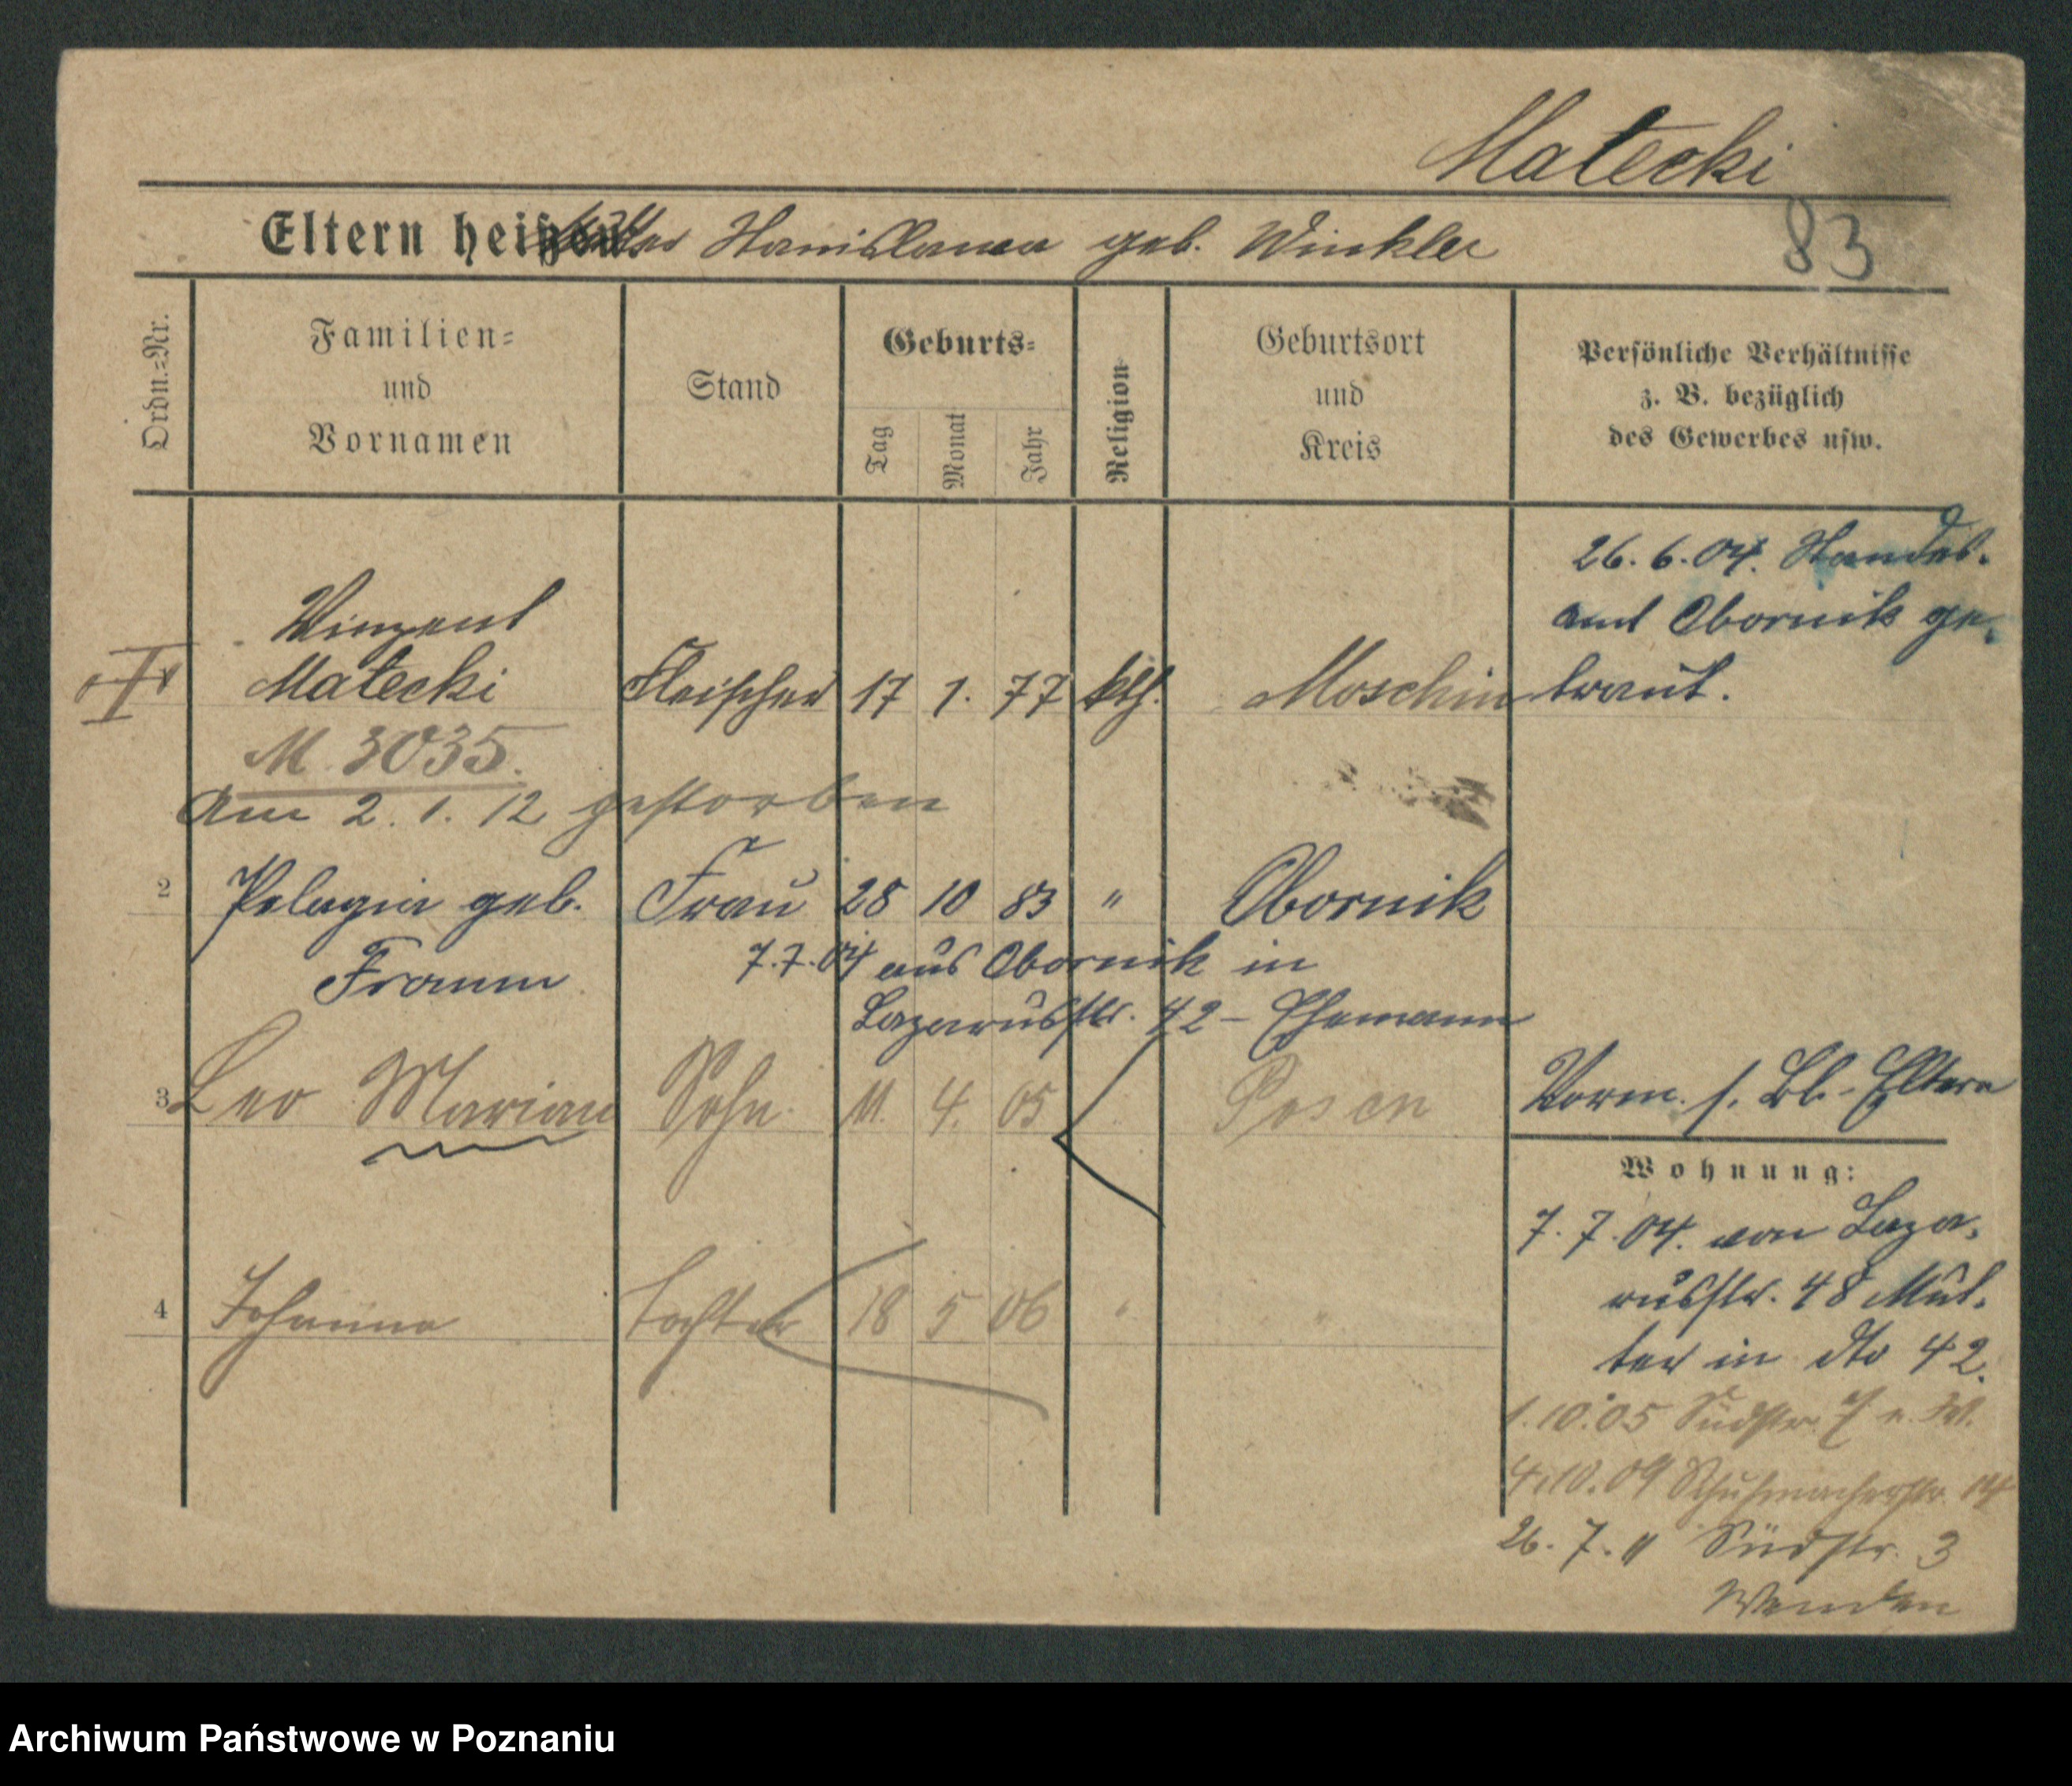 Matecki
83
Eltern heißen: Stanislawa geb. Winkler
Ordn.=Nr.
Familien=
und
Vornamen
Stand
Geburts=
Tag
Monat
Jahr
Religion
Geburtsort
und
Kreis
Persönliche Verhältnisse
z. B. bezüglich
des Gewerbes usw.
26. 6. 04. Standes-
amt Obornik ge-
traut.
Vinzent
Matecki Fleischer 17 1. 77 kth. Moschin
M. 3035.
Am 2. 1. 12 gestorben
2 Pelagia geb. Frau 28 10 83 " Obornik
Fromm
7.7.04 aus Obornik in
Lazarusstr. 42 – Ehemann
3 Leo Marian Sohn 11. 4. 05 Posen
Vorm. s. Bl. Eltern
Wohnung:
7. 7. 04. von Laza-
russtr. 48 Mut-
ter in dto 42.
4 Johanna Tochter 18 5 06 " "
1.10.05 Südstr. 7
4.10.09 Schuhmacherstr. 14
26. 7. 11 Südstr. 3
Wenden
Archiwum Państwowe w Poznaniu